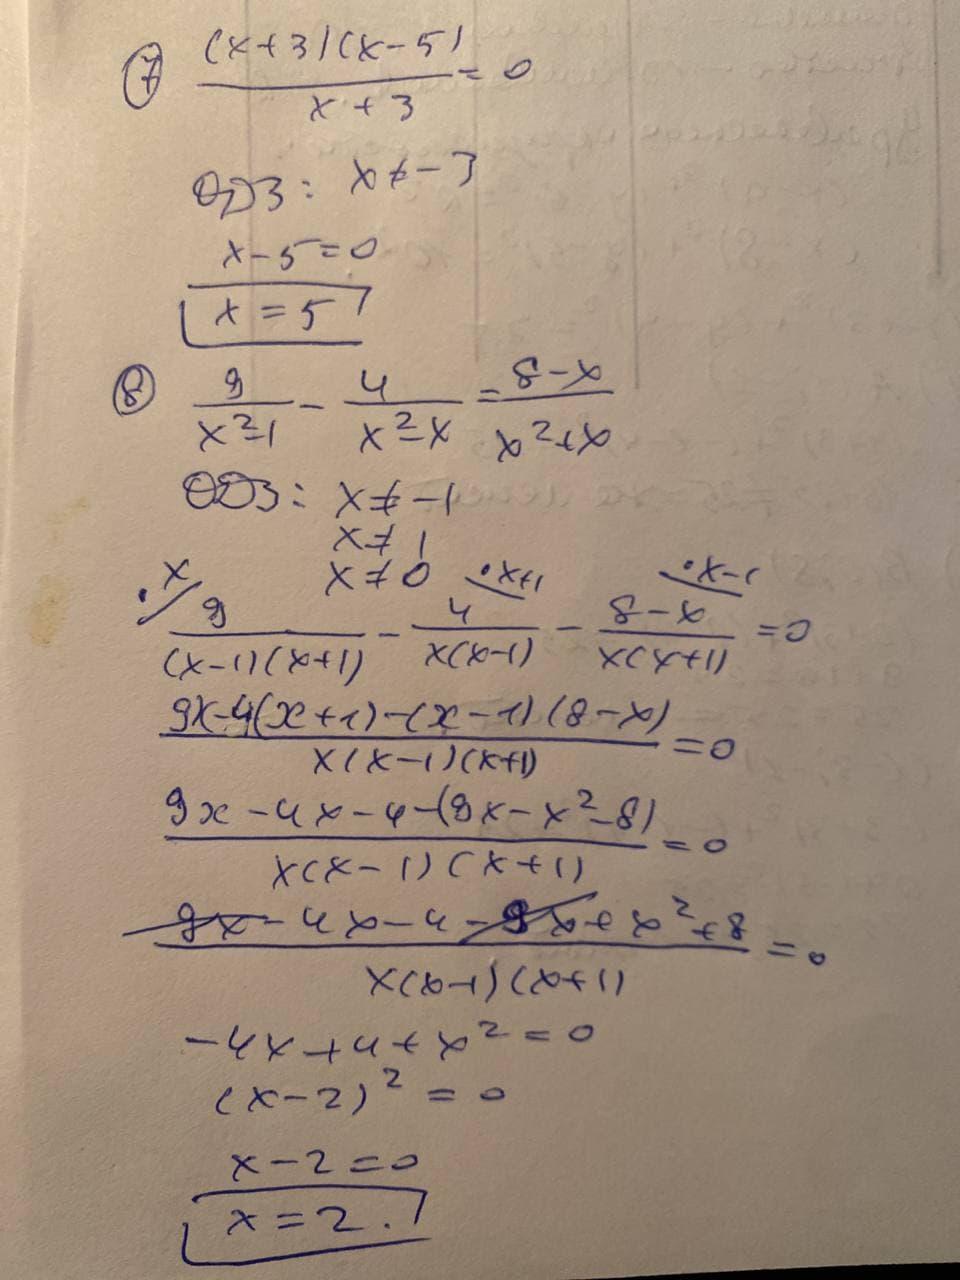 ⑦ (x+3)(x-5)
x+3 = 0
ОДЗ: x ≠ -3
x-5=0
x = 5
⑧ 9/(x²-1) - 4/(x²-x) = (8-x)/(x²+x)
ОДЗ: x ≠ -1
x ≠ 1
x ≠ 0
·x ·x+1 ·x-1
9/((x-1)(x+1)) - 4/(x(x-1)) - (8-x)/(x(x+1)) = 0
9x-4(x+1)-(x-1)(8-x)
x(x-1)(x+1) = 0
9x-4x-4-(9x-x²-8)
x(x-1)(x+1) = 0
9x-4x-4-9x+x²+8
x(x-1)(x+1) = 0
-4x+4+x²=0
(x-2)²=0
x-2=0
x=2.